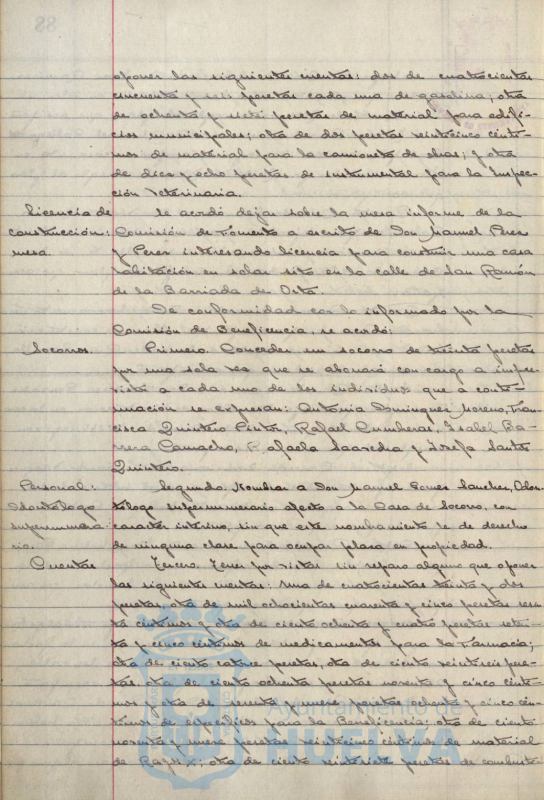 oponer las siguientes cuentas: dos de cuatrocientas
cincuenta y seis pesetas cada una de gasolina; otra
de ochenta y siete pesetas de material para edifi-
cios municipales; otra de dos pesetas veinticinco cénti-
mos de material para la camioneta de obras; y otra
de diez y ocho pesetas de instrumental para la Inspec-
ción Veterinaria.
Licencia de
construcción:
mesa.
Se acordó dejar sobre la mesa informe de la
Comisión de Fomento a escrito de Don Manuel Perez
y Perez interesando licencia para construir una casa
habitación en solar sito en la calle de San Ramón
de la Barriada de Orta.
De conformidad con lo informado por la
Comisión de Beneficencia, se acordó:
Socorros.
Primero. Conceder un socorro de treinta pesetas
por una sola vez que se abonará con cargo a impre-
vistos a cada uno de los individuos que a conti-
nuación se expresan: Antonia Dominguez Moreno, Fran-
cisca Quintero Pintor, Rafael Cumbreras, Isabel Ba-
rrera Camacho, Rafaela Saavedra y Josefa Santos
Quintero.
Personal:
Odontólogo
supernumera-
rio.
Segundo. Nombrar a Don Manuel Gomez Sanchez, Odon-
tólogo supernumerario afecto a la Casa de Socorro, con
caracter interino, sin que este nombramiento le de derecho
de ninguna clase para ocupar plaza en propiedad.
Cuentas
Tercero. Tener por vistas sin reparo alguno que oponer
las siguientes cuentas: Una de cuatrocientas treinta y dos
pesetas, otra de mil ochocientas cuarenta y cinco pesetas sesen-
ta céntimos y otra de ciento ochenta y cuatro pesetas seten-
ta y cinco céntimos de medicamentos para la Farmacia;
otra de ciento catorce pesetas, otra de ciento veintiseis pese-
tas, otra de ciento ochenta pesetas noventa y cinco cénti-
mos y otra de sesenta y nueve pesetas ochenta y cinco cén-
timos de específicos para la Beneficencia; otra de ciento
noventa y nueve pesetas veinticinco céntimos de material
de Rayos X; otra de ciento veintisiete pesetas de combusti-
Ayuntamiento de
HUELVA